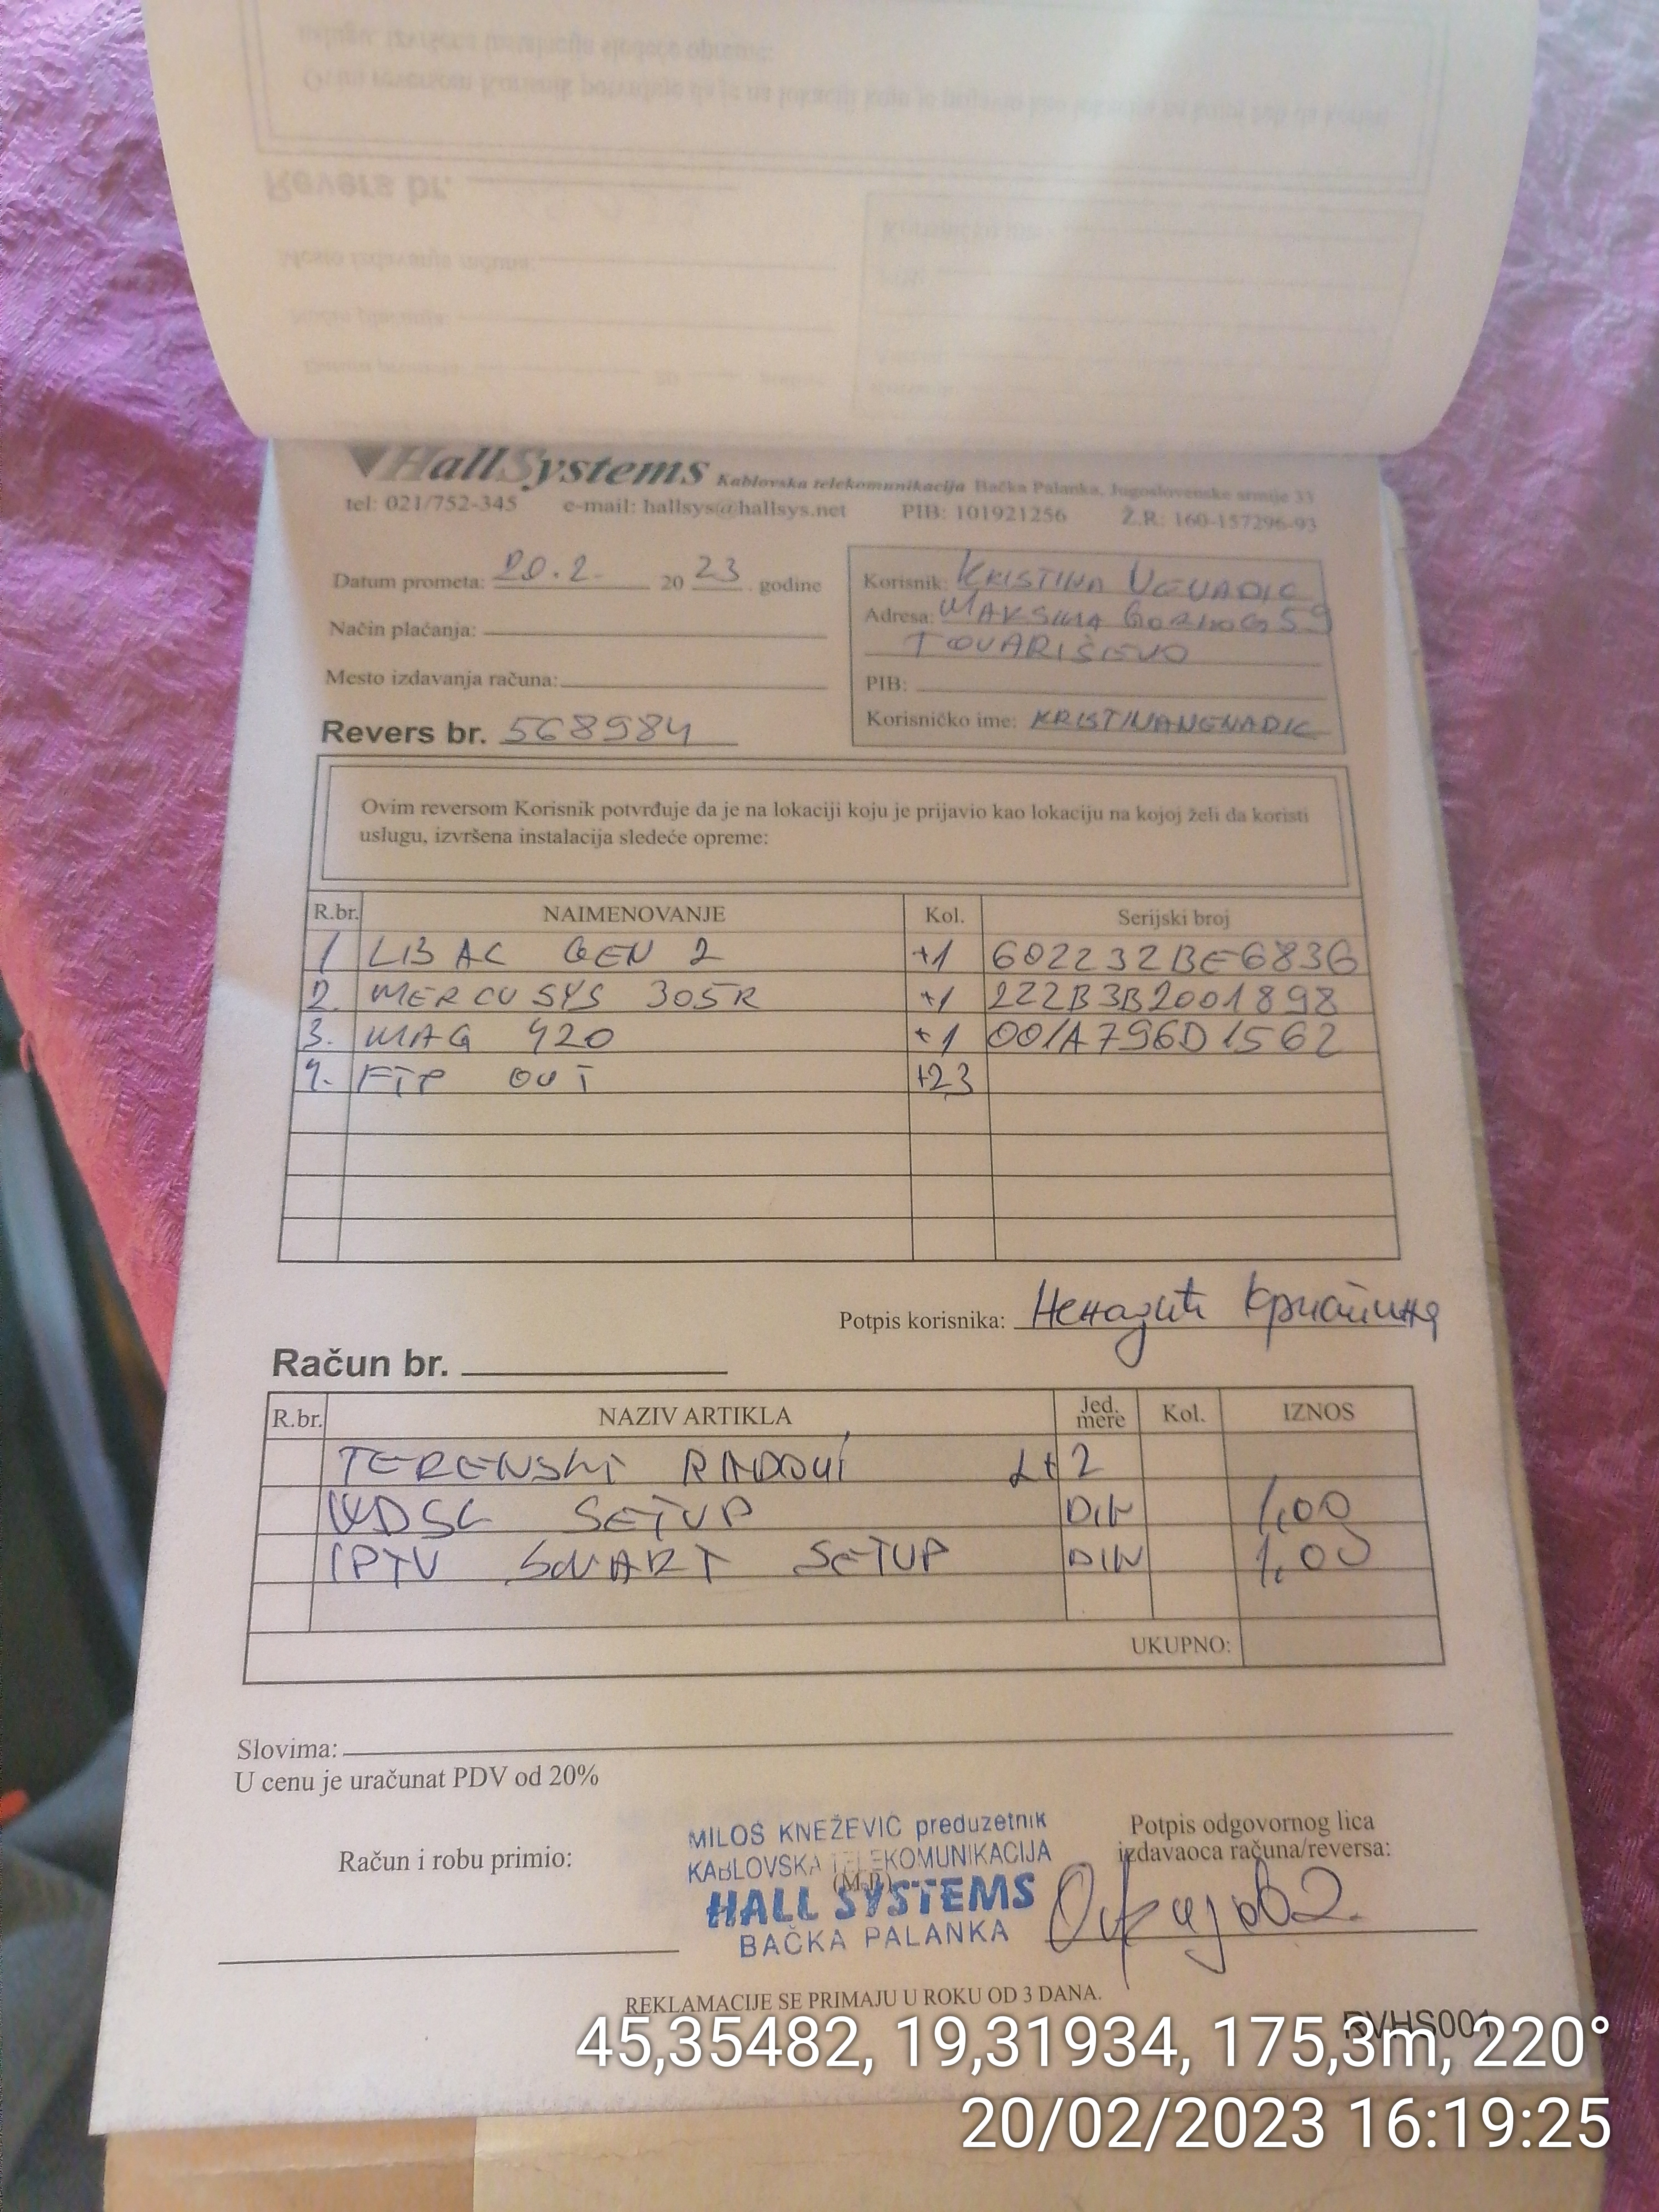 HallSystems Kablovska telekomunikacija Bačka Palanka, Jugoslovenske armije 33
tel: 021/752-345 e-mail: hallsys@hallsys.net PIB: 101921256 Ž.R: 160-157296-93
Datum prometa: 20.2. 20 23. godine
Korisnik: KRISTINA NENADIC
Adresa: MAKSIMA GORKOG 59
Način plaćanja:
TOVARIŠEVO
Mesto izdavanja računa:
PIB:
Revers br. 568984
Korisničko ime: KRISTINANENADIC
Ovim reversom Korisnik potvrđuje da je na lokaciji koju je prijavio kao lokaciju na kojoj želi da koristi
uslugu, izvršena instalacija sledeće opreme:
R.br. NAIMENOVANJE Kol. Serijski broj
1 LB AC GEN 2 +1 602232BE6836
2. MERCUSYS 305R +1 222B3B2001898
3. MAG 420 +1 001A796D1562
4. FTP OUT +23
Potpis korisnika: Ненадић Кристина
Račun br.
R.br. NAZIV ARTIKLA Jed. mere Kol. IZNOS
TERENSKI RADOVI L+ 2
WDSL SETUP DIN 1,00
IPTV SMART SETUP DIN 1,00
UKUPNO:
Slovima:
U cenu je uračunat PDV od 20%
Račun i robu primio:
MILOŠ KNEŽEVIĆ preduzetnik
KABLOVSKA TELEKOMUNIKACIJA
(M.P.)
HALL SYSTEMS
BAČKA PALANKA
Potpis odgovornog lica
izdavaoca računa/reversa:
REKLAMACIJE SE PRIMAJU U ROKU OD 3 DANA.
RVHS001
45,35482, 19,31934, 175,3m, 220°
20/02/2023 16:19:25